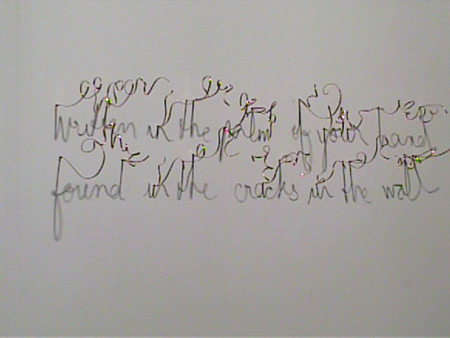 Written in the palm of your hand
found in the cracks in the wall